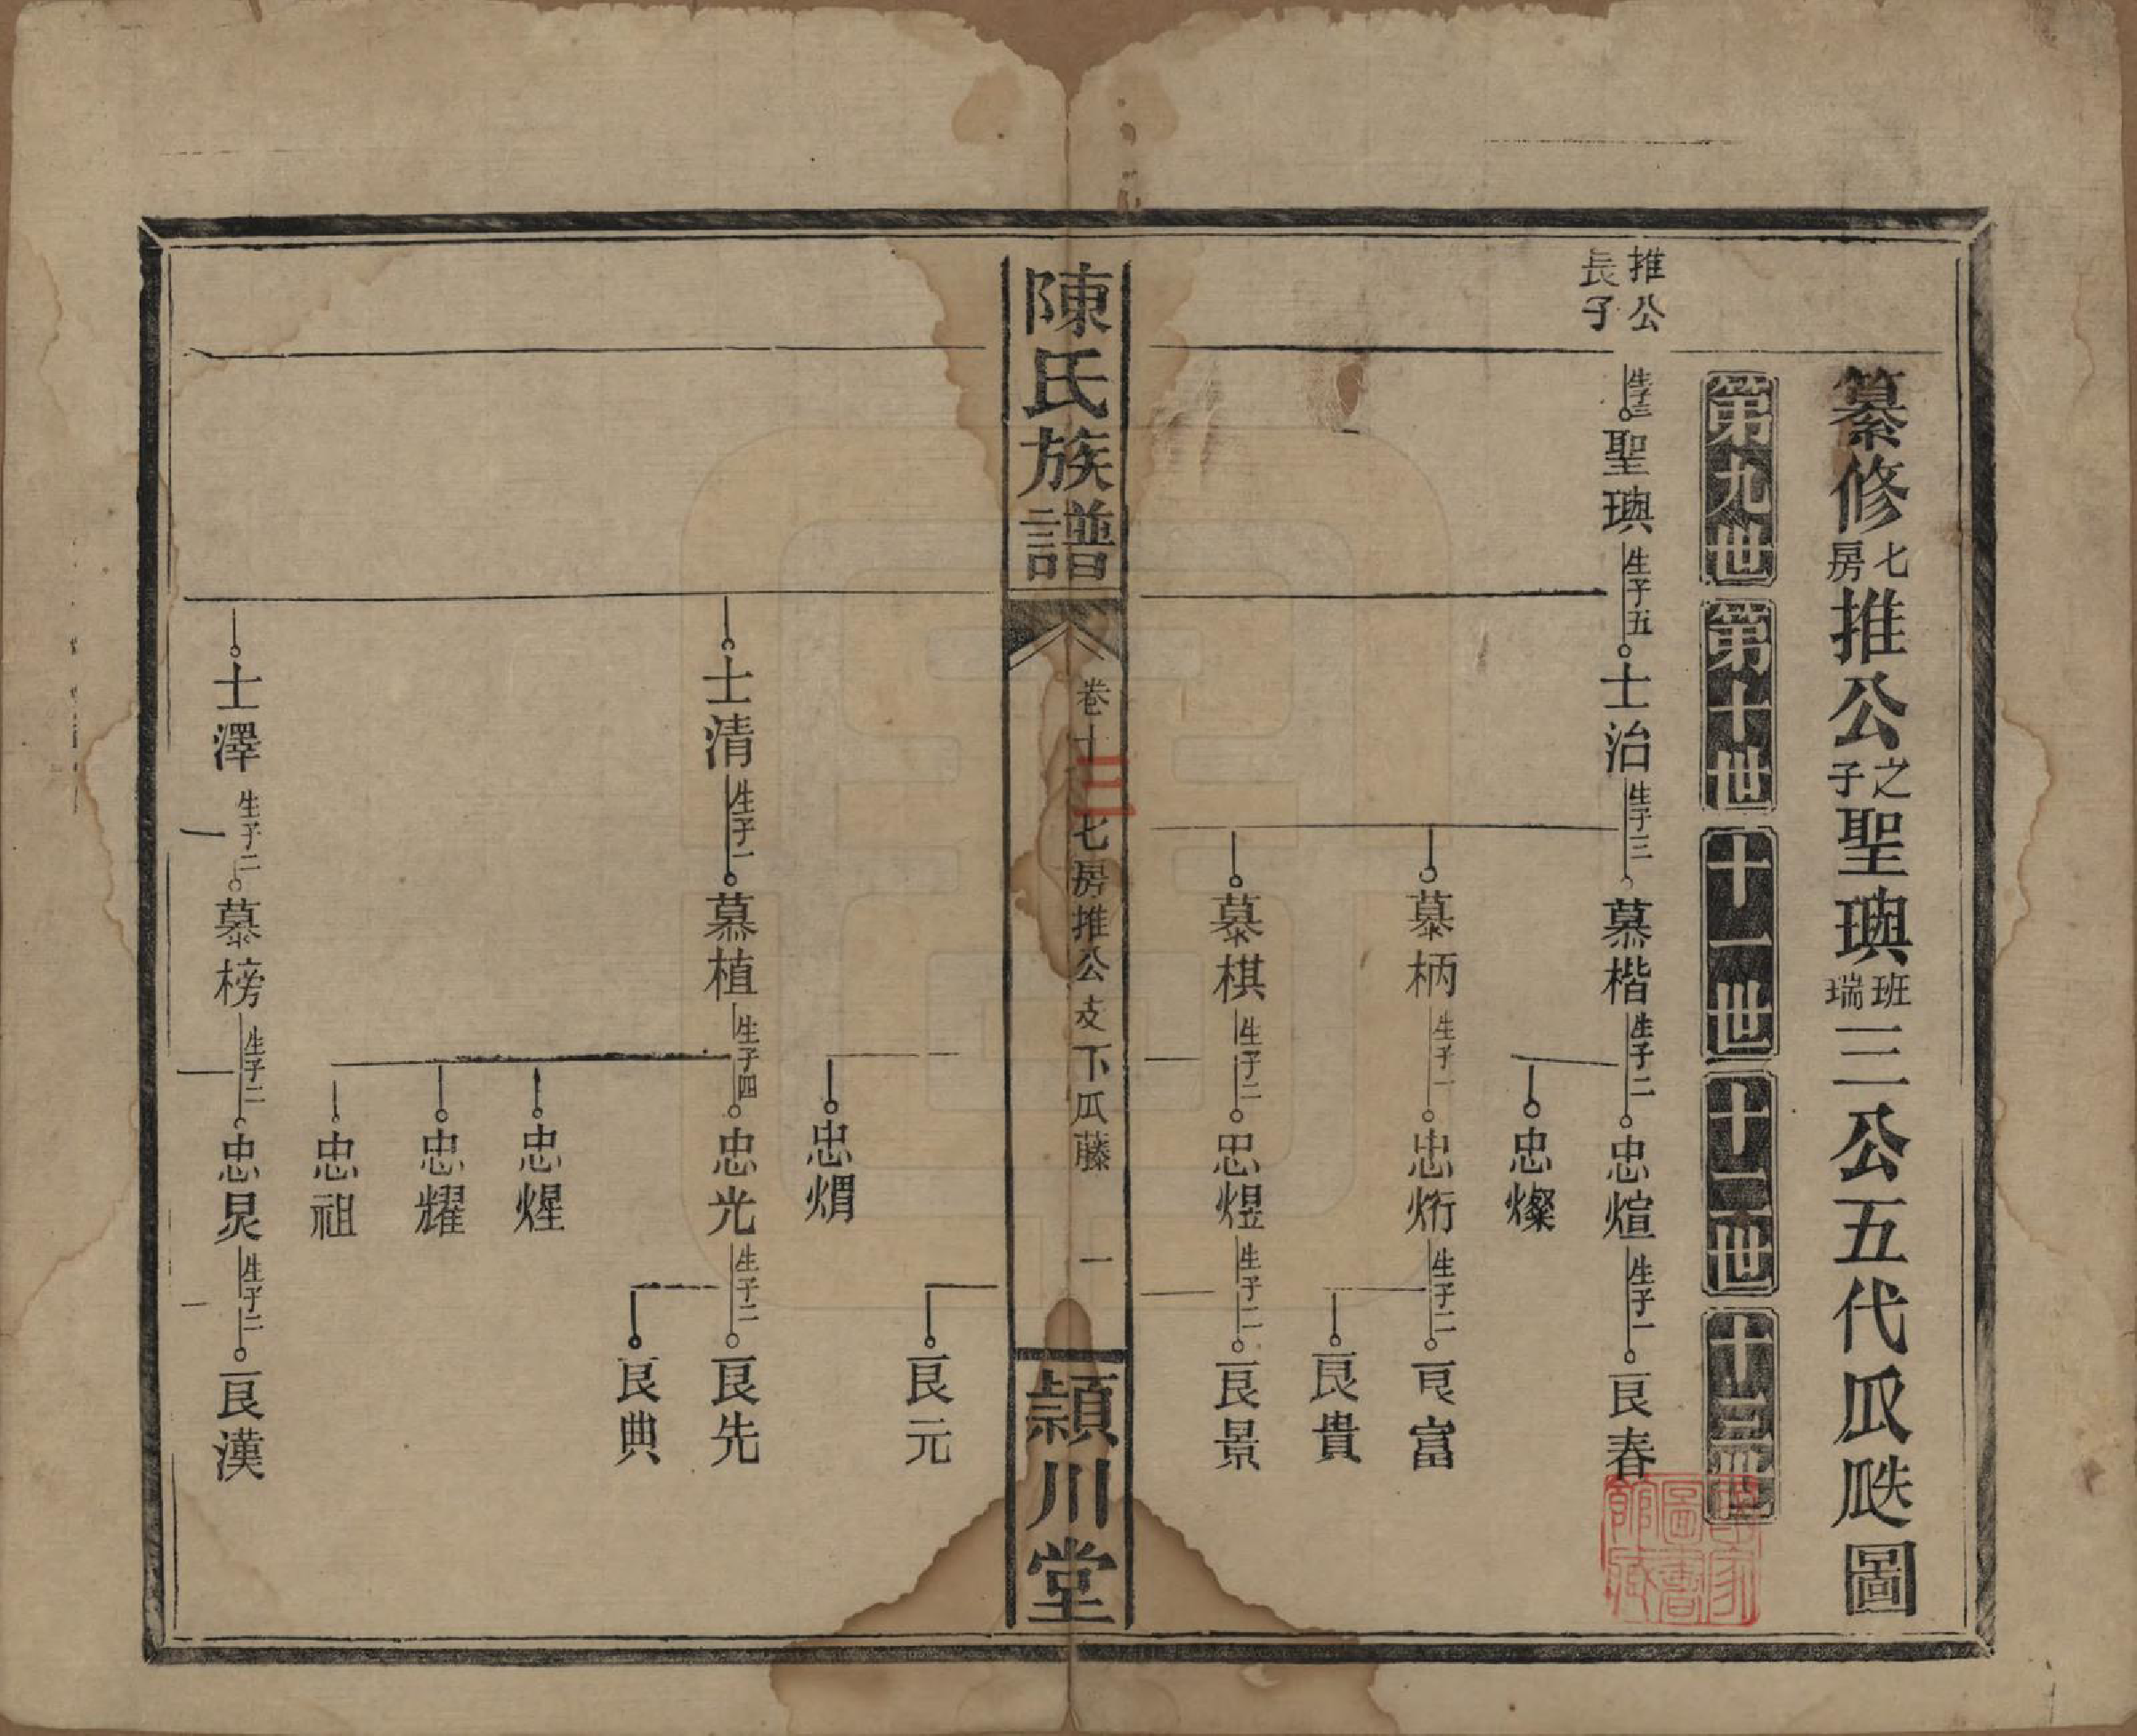 纂修七房推公之子聖璵班瑞三公五代瓜瓞圖
第九世
第十世
十一世
十二世
十三世
推公長子
生子三
聖璵
生子五
士治
生子三
慕楷
生子二
忠煊
生子一
良春
忠燦
慕柄
生子一
忠烆
生子二
良富
良貴
慕棋
生子二
忠煜
生子二
良景
陳氏族譜
卷十三
七房推公支下瓜藤
一
潁川堂
良元
忠煟
士清
生子一
慕植
生子四
忠光
生子二
良先
良典
忠煋
忠耀
忠祖
士澤
生子二
慕榜
生子二
忠炅
生子二
良漢